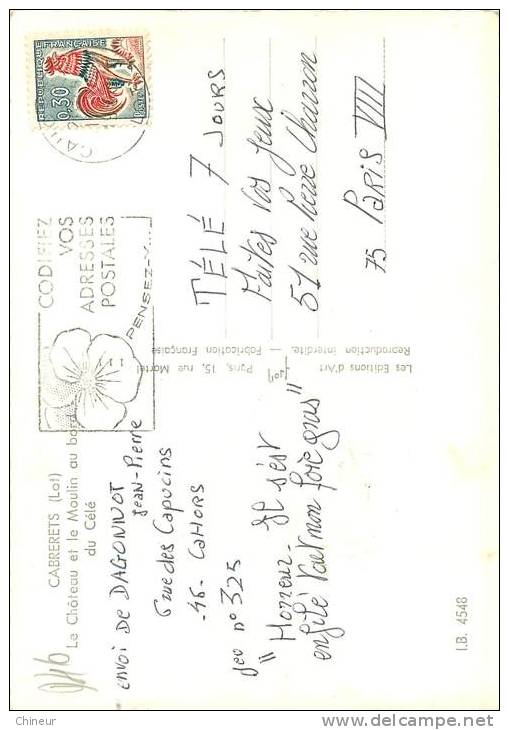 CABRERETS (Lot)
Le Château et le Moulin au bord
du Célé
ENVOI DE DAGONNOT
JEAN-PIERRE
6 rue des Capucins
-46- CAHORS
Jeu n° 325
" Horreur - Il s'est
enfilé tout mon foie gras "
I.B. 4548
Les Editions d'Art
Paris, 15, rue Martel
Reproduction interdite. — Fabrication Française
CODIFIEZ
VOS
ADRESSES
POSTALES
PENSEZ-Y...
REPUBLIQUE FRANÇAISE
0,30
POSTES
TÉLÉ 7 JOURS
Faites vos jeux
51 rue Pierre Charron
75 PARIS VIII
Chineur
www.delcampe.net